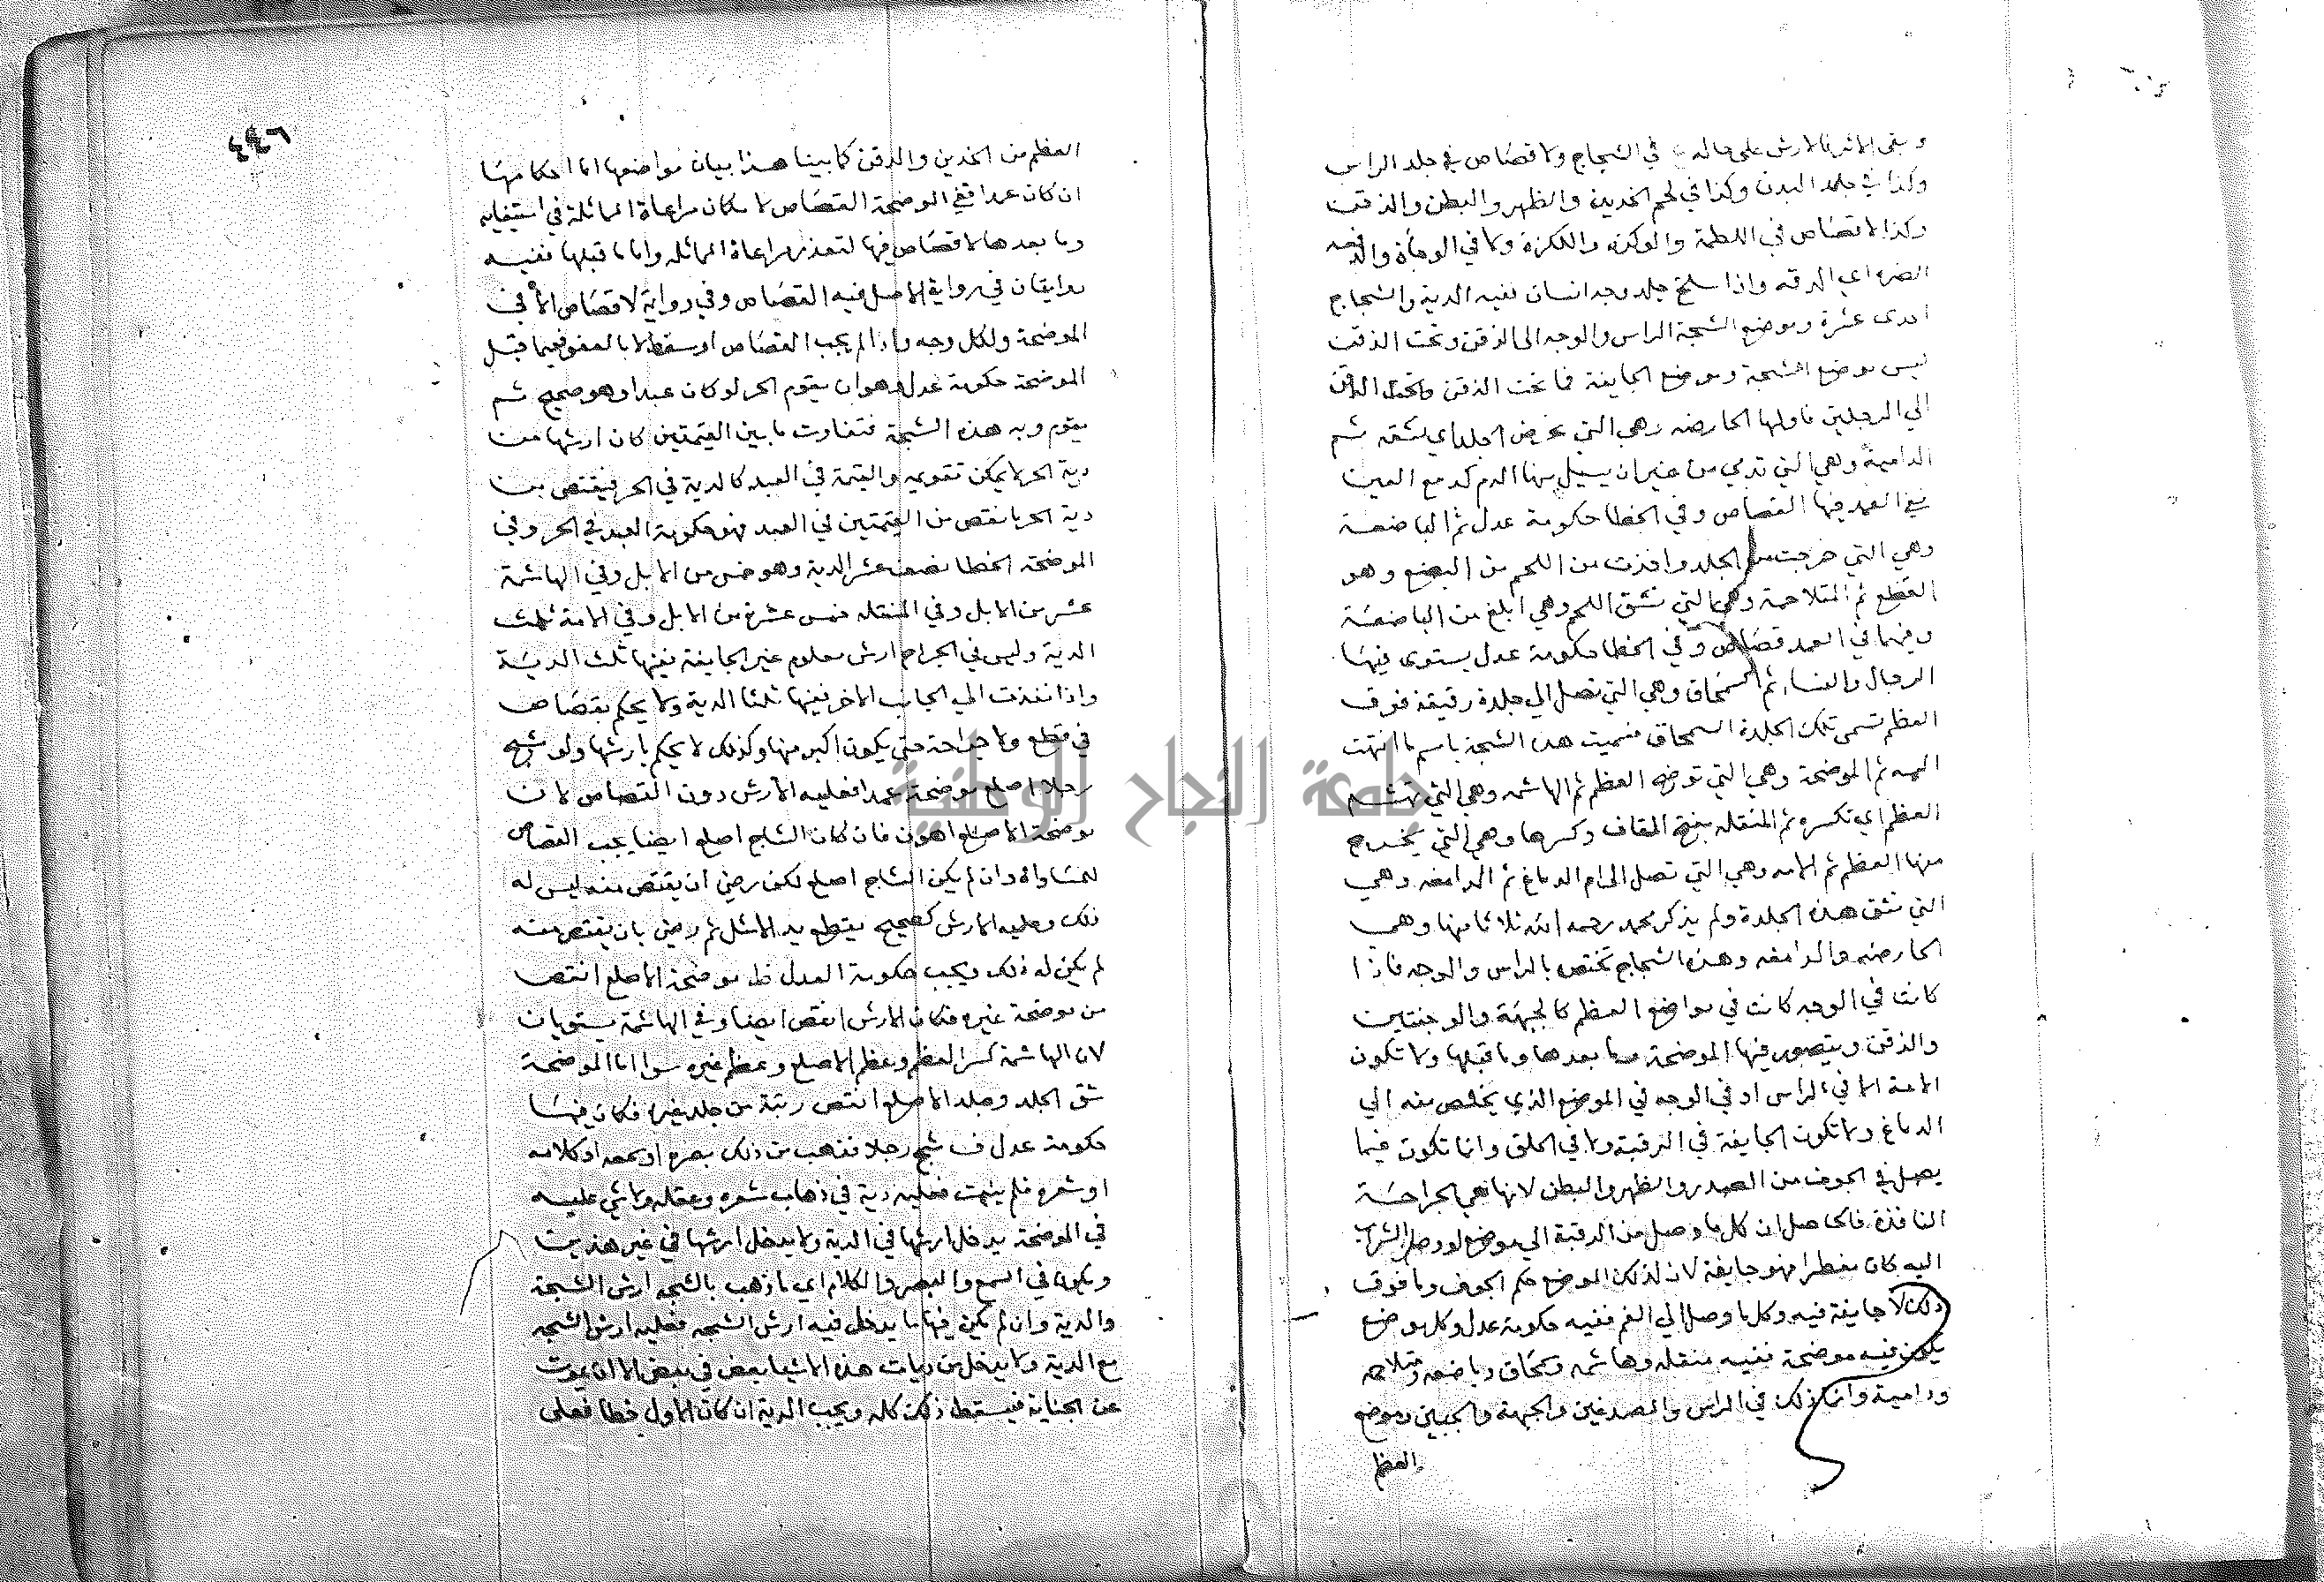 ويبقى الاثر فالارش على حاله في الشجاج ولا قصاص في جلد الراس
وكذا في جلد البدن وكذا في لحم الخدين والظهر والبطن والذقن
وكذا لا قصاص في اللطمة والوكزة واللكزة ولا في الوجأة والدقة
اي الدقه واذا سلخ جلد وجه انسان ففيه الدية والشجاج
احدى عشرة وموضع الشجة الراس والوجه الى الذقن وتحت الذقن
ليس موضع الشجة وموضع الجايفة فما تحت الذقن
الي الرجلين فاولها الحارصه وهي التي تحرص الجلد اي تشقه ثم
الدامية وهي التي تدمي من غير ان يسيل منها الدم كدمع العين
في العمد فيها القصاص وفي الخطا حكومة عدل ثم الباضعة
وهي التي خرجت من الجلد واخذت من اللحم من البضع وهو
القطع ثم المتلاحمة وهي التي تشق اللحم وهي ابلغ من الباضعة
وفيهما في العمد قصاص وفي الخطا حكومة عدل يستوى فيها
الرجال والنساء ثم السمحاق وهي التي تصل الي جلدة رقيقة فوق
العظم تسمى تلك الجلدة السمحاق فسميت هذه الشجة باسم ما انتهت
اليه ثم الموضحة وهي التي توضح العظم ثم الهاشمه وهي التي تهشم
العظم اي تكسره ثم المنقله بفتح القاف وكسرها وهي التي يخرج
منها العظم ثم الامه وهي التي تصل الى ام الدماغ ثم الدامغه وهي
التي تشق هذه الجلدة ولم يذكر محمد رحمه الله ثلاثا منها وهي
الحارصه والدامغه وهذه الشجاج تختص بالراس والوجه فاذا
كانت في الوجه كانت في مواضع العظم كالجبهة والوجنتين
والذقن ويتصور فيها الموضحة وما بعدها وما قبلها ولا تكون
الامة الا في الراس او في الوجه في الموضع الذي يخلص منه الي
الدماغ ولا تكون الجايفة في الرقبة ولا في الحلق وانما تكون فيما
يصل في الجوف من الصدر والظهر والبطن لانها هي الجراحة
النافذة فالحاصل ان كل ما وصل من الرقبة الي موضع لو وصل الشراب
اليه كان مفطرا فهو جايفة لان لذلك الموضع حكم الجوف وما فوق
ذلك لا جايفة فيه وكل ما وصل الي الفم ففيه حكومة عدل وكل موضع
يكون فيه موضحة ففيه منقله وهاشمه وسمحاق وباضعه ومتلاحمه
ودامية وانما ذلك في الراس والصدغين والجبهة والجبين وموضع
العظم
٤٣٦
العظم من الخدين والدقن كما بينا هذا بيان مواضعها اما احكامها
ان كان عمدا ففي الموضحة القصاص لامكان مراعاة المماثلة في استيفايه
وما بعدها لا قصاص فيها لتعذر مراعاة المماثله واما ما قبلها ففيه
روايتان في رواية الاصل فيه القصاص وفي رواية لا قصاص الا في
الموضحة ولكل وجه واذا لم يجب القصاص او سقط لا بالعفو فيما قبل
الموضحة حكومة عدل وهو ان يقوم الحر لو كان عبدا وهو صحيح ثم
يقوم وبه هذه الشجة فتفاوت ما بين القيمتين كان ارشها من
دية الحر لا يمكن تقويمه والقيمة في العبد كالدية في الحر فينقص من
دية الحر ما نقص من القيمتين في العبد فهو حكومة العبد في الحر وفي
الموضحة الخطا نصف عشر الدية وهو خمس من الابل وفي الهاشمة
عشر من الابل وفي المنقله خمس عشرة من الابل وفي الامة ثلث
الدية وليس في الجراح ارش معلوم غير الجايفة ففيها ثلث الدية
واذا نفذت الي الجانب الاخر ففيها ثلثا الدية ولا يحكم بقصاص
في قطع ولا جراحة حتى يكون اكبر منها وكذلك لا يحكم بارشها ولو شج
رجلا اصلع موضحة عمدا فعليه الارش دون القصاص لان
موضحة الاصلع اهون فان كان الشاج اصلع ايضا يجب القصاص
للمساواة وان لم يكن الشاج اصلع لكن رضي ان يقتص منه ليس له
ذلك وعليه الارش كصحيح يقطع يد الاشل ثم رضي بان يقتص منه
لم يكن له ذلك ويجب حكومة العدل موضحة الاصلع انقص
من موضحة غيره فكان الارش انقص ايضا وفي الهاشمة يستويان
لان الهاشمة كسر العظم وعظم الاصلع وعظم غيره سوا اما الموضحة
شق الجلد وجلد الاصلع انقص رتبة من جلد غيره فكان فيها
حكومة عدل شج رجلا فذهب من ذلك بصره او سمعه او كلامه
او شعره فلم ينبت فعليه دية في ذهاب شعره وعقله ولا شي عليه
في الموضحة يدخل ارشها في الدية ولا يدخل ارشها في غير هذين
ويكون في السمع والبصر والكلام اي ما ذهب بالشجه ارش الشجة
والدية وان لم يكن فيها ما يدخل فيه ارش الشجه فعليه ارش الشجه
مع الدية ولا يدخل من ديات هذه الاشيا بعض في بعض الا ان يموت
عن الجناية فيسقط ذلك كله ويجب الدية ان كان الاول خطا فعلى
جامعة النجاح الوطنية